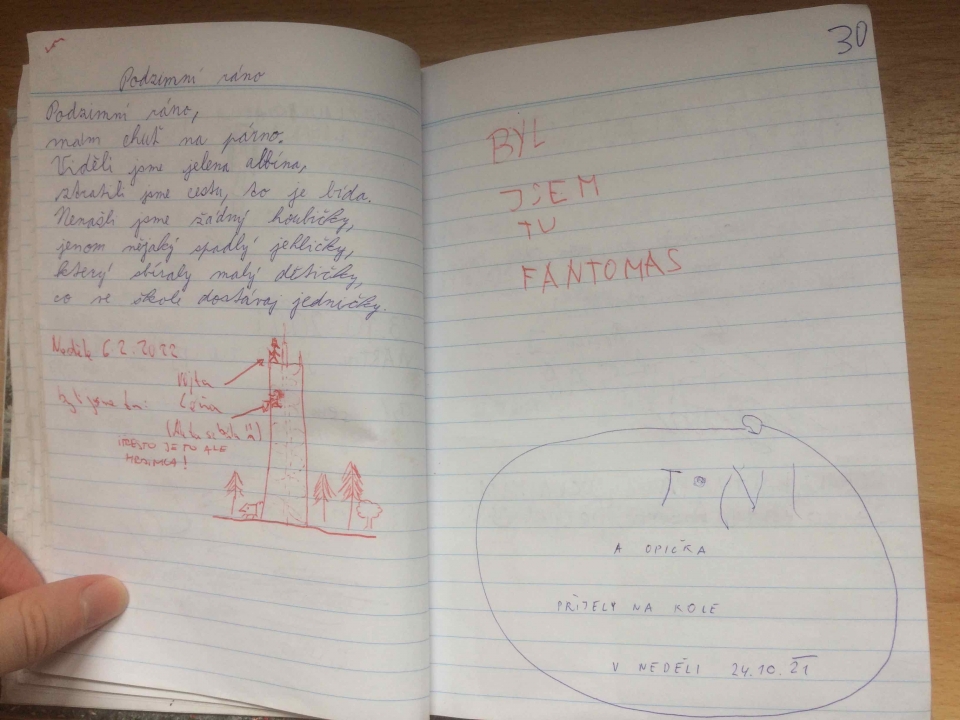 Podzimní ráno
Podzimní ráno,
mám chuť na párno.
Viděli jsme jelena albína,
ztratili jsme cestu, to je bída.
Nenašli jsme žádný houbičky,
jenom nějaký spadlý jehličky,
který sbíraly malý dětičky,
co ve škole dostávaj jedničky.
6.2.2022
jsme
PŘESTO JE TO ALE
30
BYL
JSEM
TU
FANTOMAS
TONI
A OPIČKA
PŘIJELY NA KOLE
V NEDĚLI 24.10.21